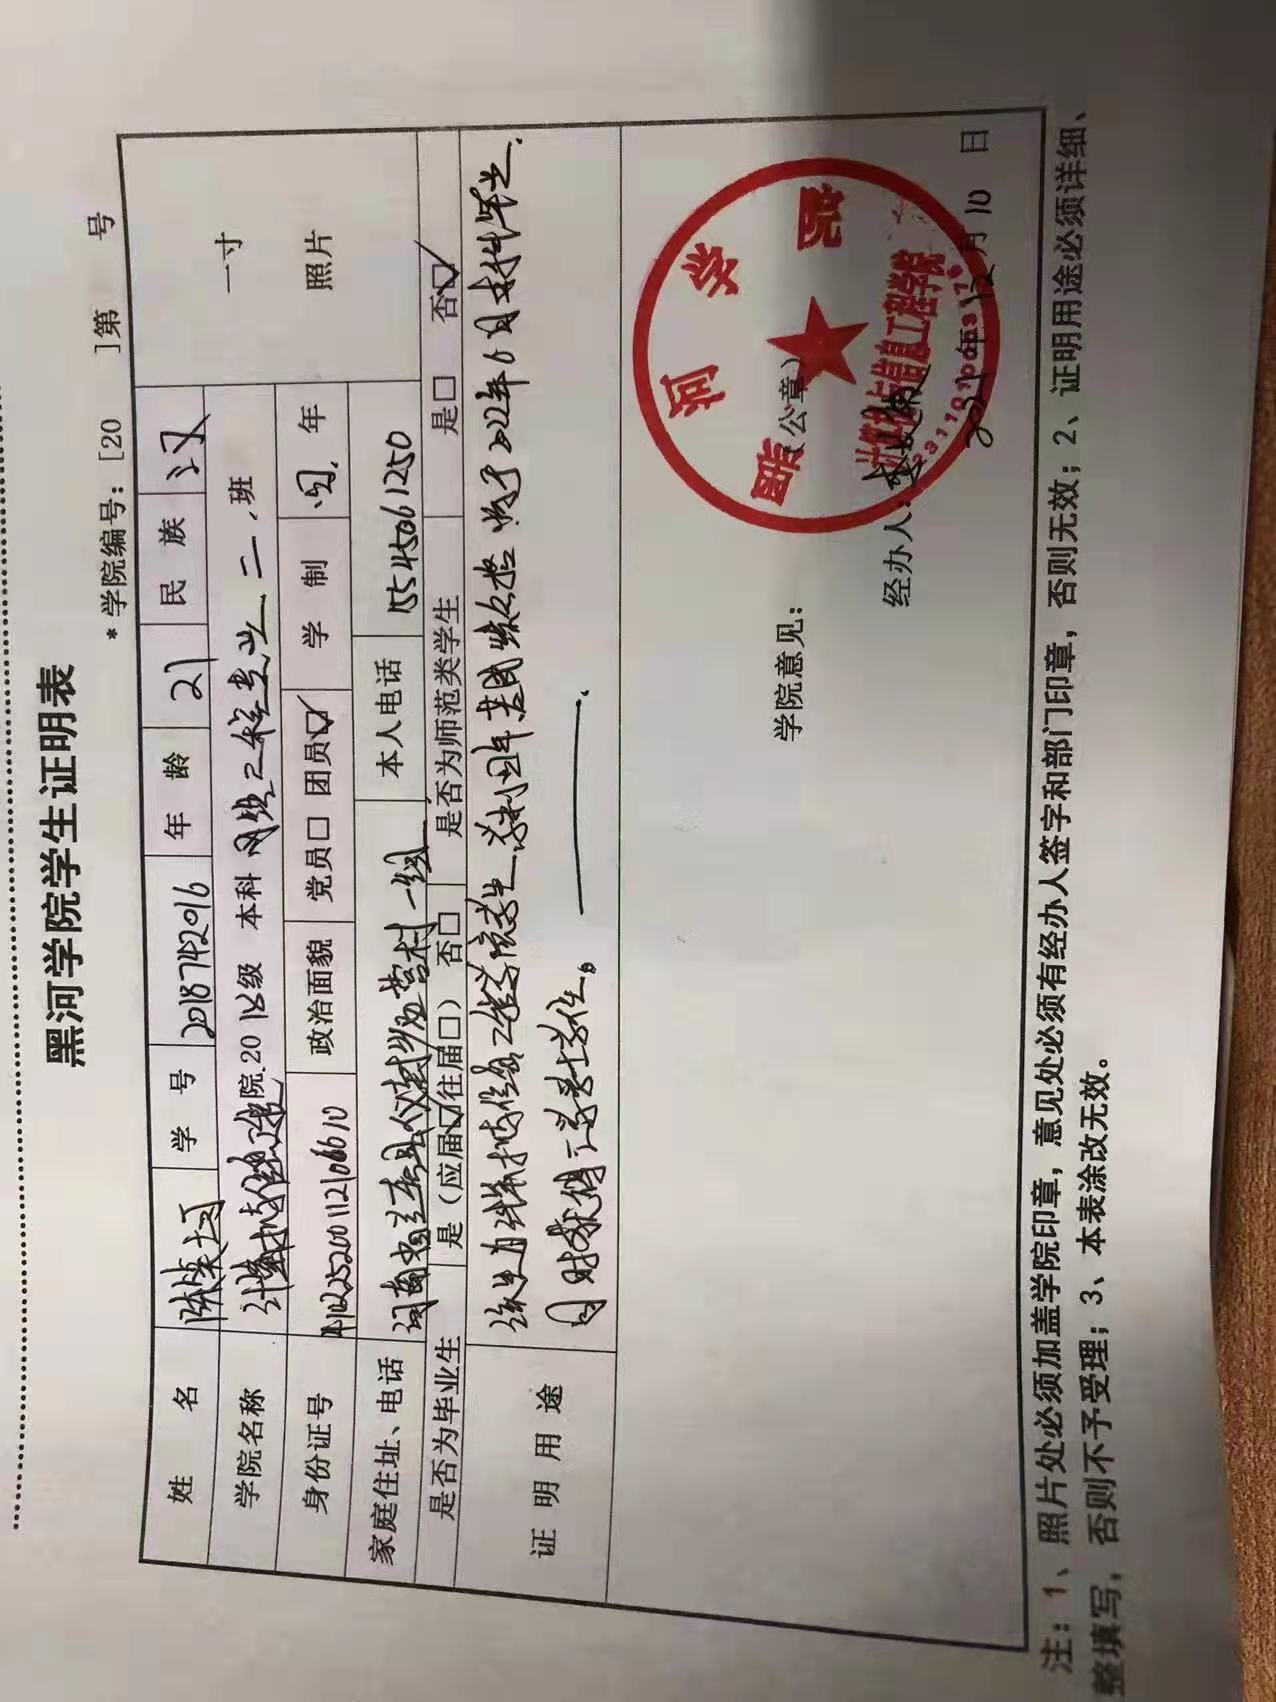 黑河学院学生证明表
*学院编号：[20 ]第 号
姓 名 陈笑坷 学 号 2018742016 年 龄 21 民 族 汉
一寸
照片
学院名称 计算机与信息工程院.2018级 本科 网络工程专业 二.班
身份证号 410225200112106610 政治面貌 党员□ 团员☑ 学 制 四. 年
家庭住址、电话 河南省兰考县仪封乡 营村一组 本人电话 15545061250
是否为毕业生 是（应届☑往届□） 否□ 是否为师范类学生 是□ 否☑
证明用途 该生为计算机与信息工程学院学生,学制四年,若成绩合格,将于2022年6月本科毕业,
同时获得工学学士学位。
学院意见： （公章）
黑河学院
计算机与信息工程学院
经办人：李
2021年12月10日
注：1、照片处必须加盖学院印章，意见处必须有经办人签字和部门印章，否则无效；2、证明用途必须详细、
整填写，否则不予受理；3、本表涂改无效。